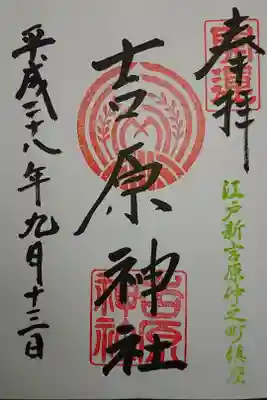 奉拝
開運
江戸新吉原仲之町鎮座
吉原神社
吉原神社
平成二十八年九月十三日